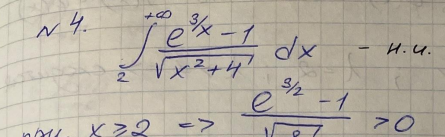 № 4.
∫₂^{+∞} (e^{3/x} - 1)/√(x²+4) dx - н.и.
при x ≥ 2 => (e^{3/2} - 1)/√8 > 0